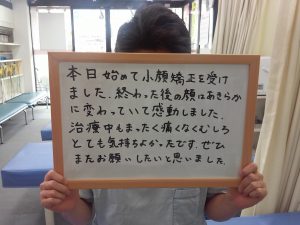 本日始めて小顔矯正を受け
ました。終わった後の顔はあきらか
に変わっていて感動しました。
治療中もまったく痛くなくむしろ
とても気持ちよかったです。ぜひ
またお願いしたいと思いました。